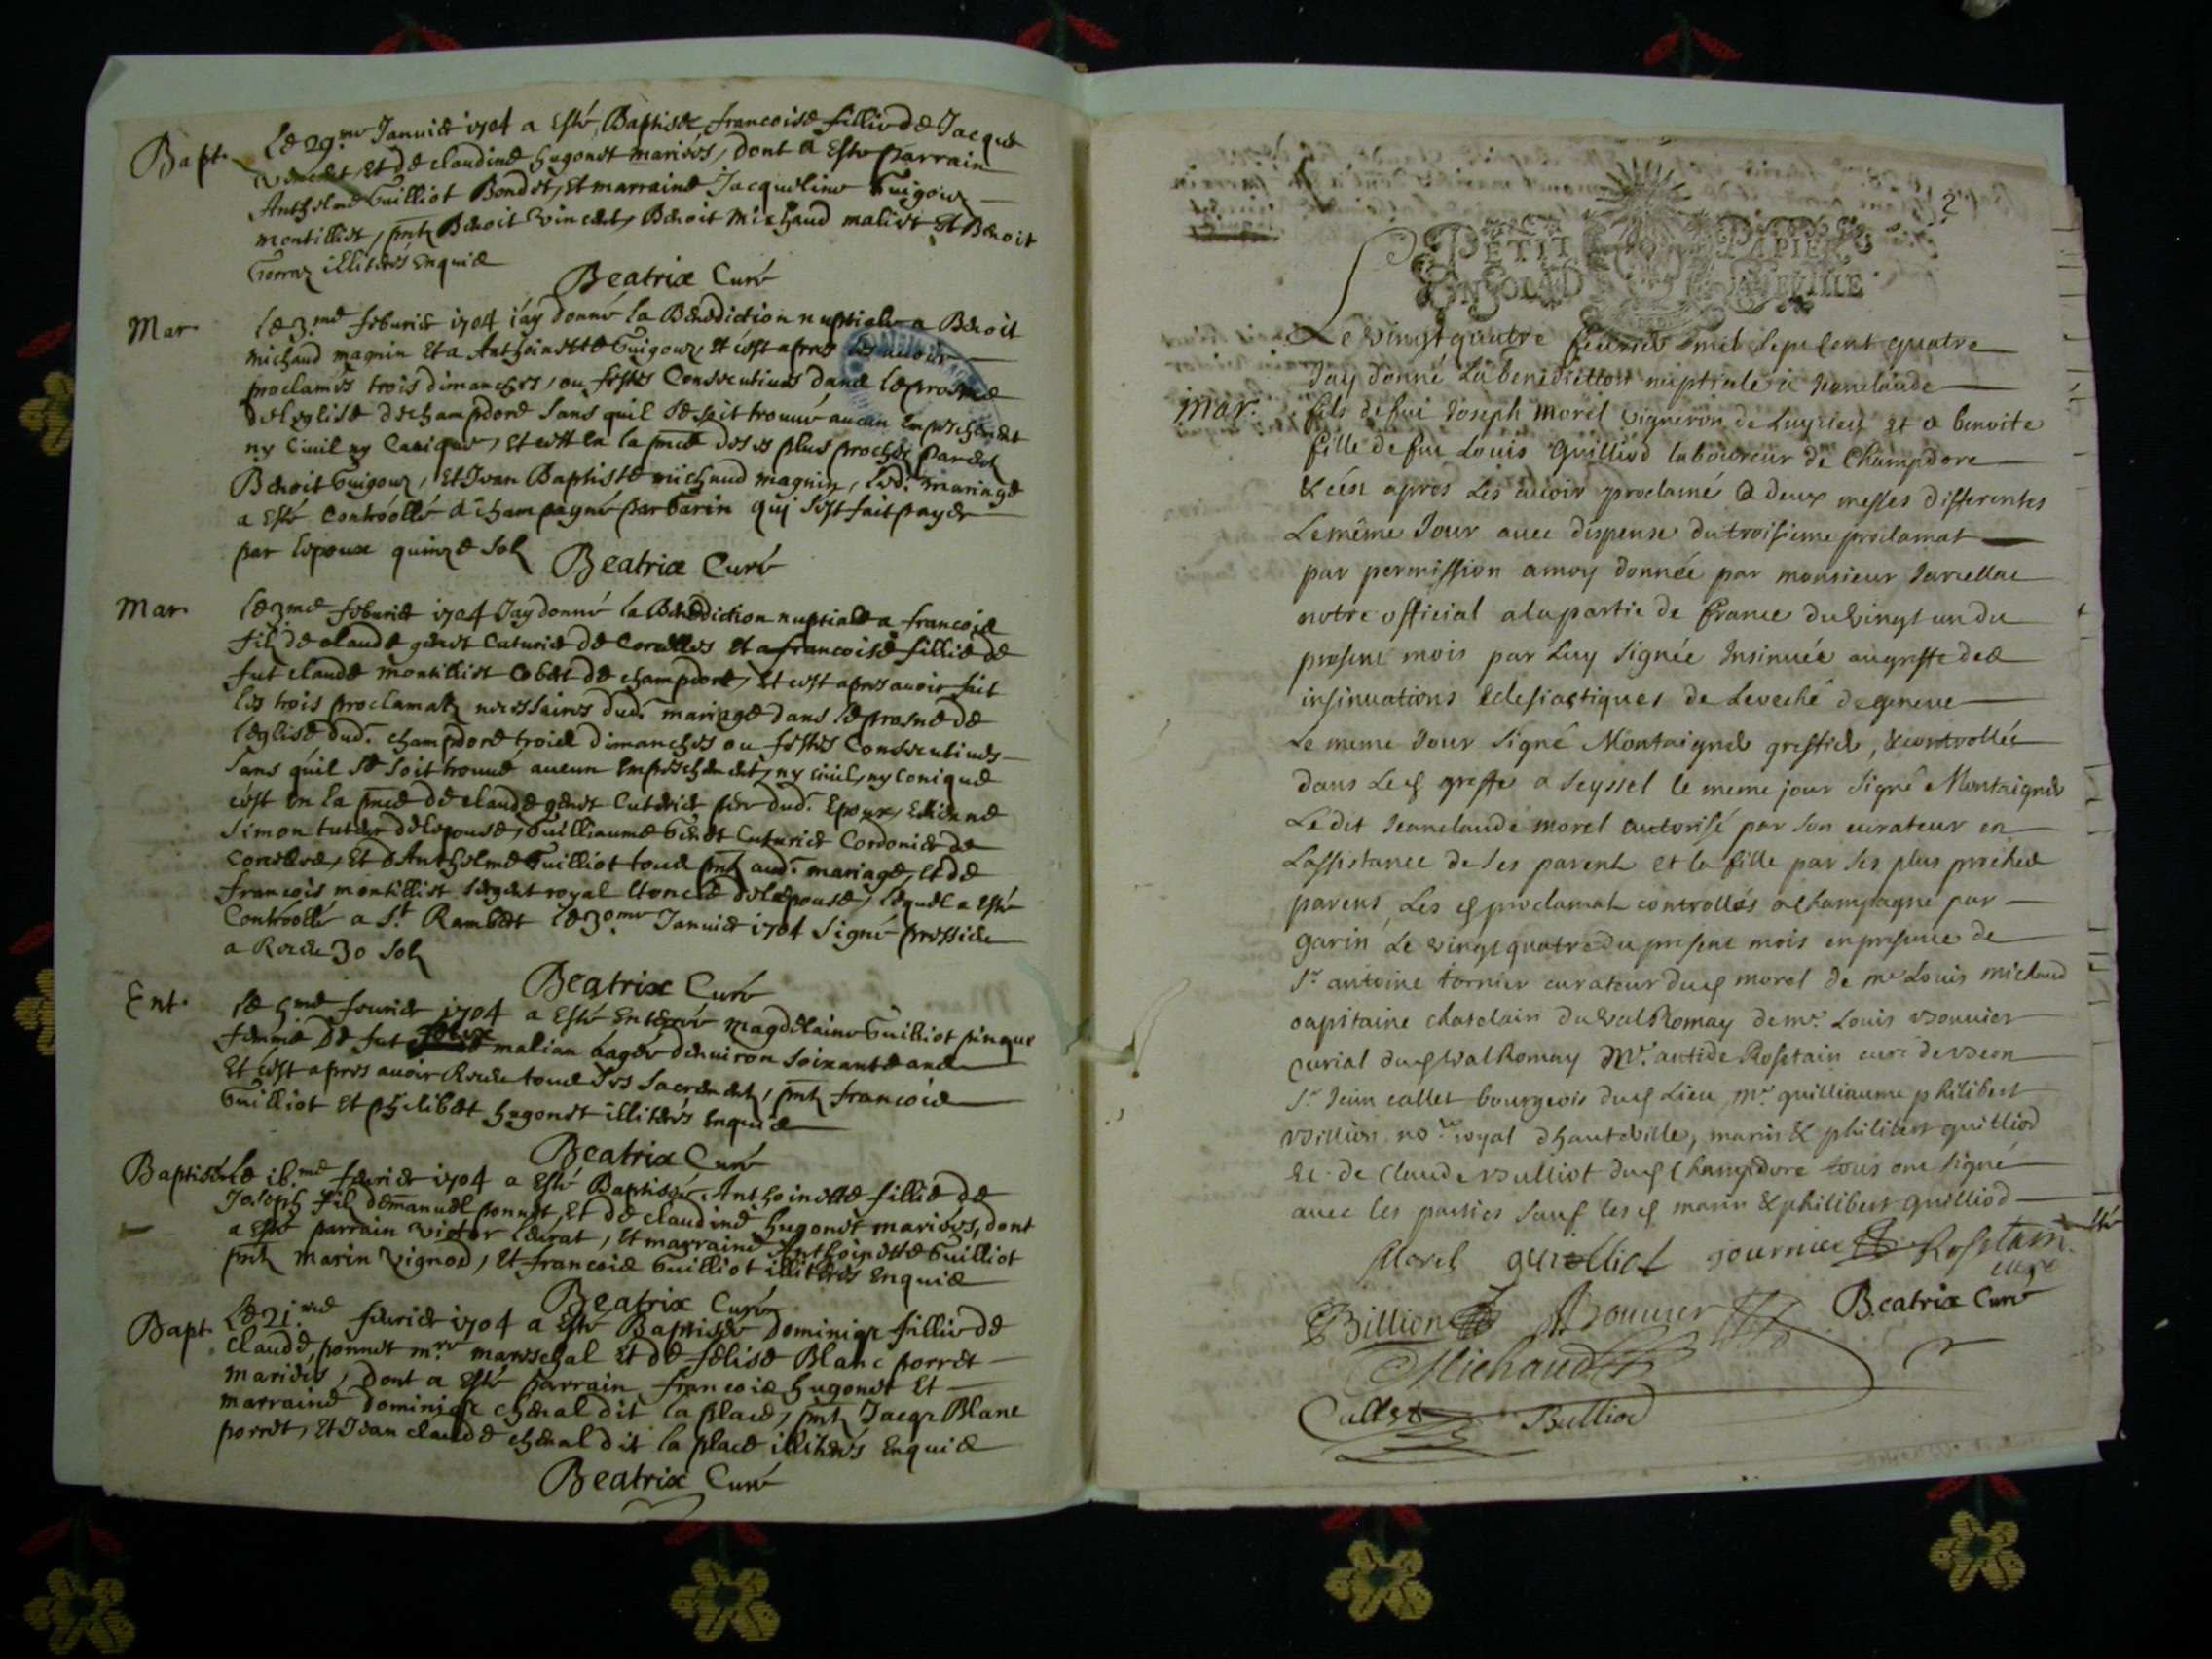 Bapt. Le 29.me Januier 1704 a Esté Baptisée francoise fillie de Jacque
Vincent, Et de claudine hugonet mariées, dont a Esté parrain
Anthelme Guilliot Bondet, Et marraine Jacqueline Guigoux
montilliet, pnts Benoit Vincent, Benoit Michaud maliet Et Benoit
Gorraz illiterés Enquis
Beatrix Curé
Mar. Le 3.me feburier 1704 iay donné la Benediction nuptiale a Benoit
michaud magnin Et a Anthoinette Guigoux, Et cest apres les auoir
proclamés trois dimanches, ou festes Consecutiues dans le prosne
de leglise de champdore sans quil se soit trouué aucun Empeschement
ny Ciuil ny Canique, Et cest en la pnce de ses plus proches parents
Benoit Guigoux, Et Jean Baptiste michaud magnin, led. mariage
a Esté Controollé a champagne par Garin qui sest fait payer
par lepoux quinze sols
Beatrix Curé
Mar. Le 3.me feburier 1704 Jay donné la Benediction nuptiale a francois
fils de claude genet Cuturier de Corcelles Et a francoise fillie de
fut claude montilliet Cobet de champdore, Et cest apres auoir fait
les trois proclamats necessaires dud. mariage dans le prosne de
leglise dud. champdore trois dimanches ou festes Consecutiues
sans quil se soit trouué aucun Empeschement, ny ciuil, ny conique
cest en la pnce de claude genet Cuturier pere dud. Epoux, Estienne
Simon tuteur de lepouse, Guilliaume Genet Cuturier Cordonier de
Corcelles, Et d'Anthelme Guilliot tous pnts aud. mariage, Et de
francois montilliet sergent royal Et oncle de lepouse, lequel a Esté
Controollé a St. Rambert le 30.me Januier 1704 signé
a Receu 30 sols
Beatrix Curé
Ent. Le 5.me feurier 1704 a Esté Enterrée magdelaine Guilliot pingue
femme De fut malian eagée denuiron soixante ans
Et cest apres auoir Receu tous les Sacrements, pnts francois
Guilliot Et philibert hugonet illiterés Enquis
Beatrix Curé
Baptisée Le 18.me feurier 1704 a Esté Baptisée Anthoinette fillie de
Joseph fils demanuel ponnet, Et de claudine hugonet mariées, dont
a Esté parrain Victor leurat, Et marraine Anthoinette Guilliot
pnts marin Vignod, Et francois Guilliot illiterés Enquis
Beatrix Curé
Bapt. Le 21.me feurier 1704 a Esté Baptisée Dominique fillie de
Claude ponnet m.re mareschal Et de felise Blanc porret
mariées, dont a Esté parrain francois hugonet Et
marraine Dominique cheual dit la place, pnts Jacque Blanc
porret, Et Jean claude cheual dit la place illiterés Enquis
Beatrix Curé
2
PETIT PAPIER
UN SOL LA FEUILLE
Le vingt quatre feurier mil sept cent quatre
Jay donné la benediction nuptiale à Jeanclaude
mar. fils de fut Joseph morel vigneron de Luyrieu et a benoite
fille de fut Louis Guilliod laboureur de Champdore
& cest apres Les auoir proclamé a deux messes differentes
Le même Jour auec dispense du troisieme proclamat
par permission amoy donnée par monsieur Jarcellat
notre official ala partie de france du vingt un du
present mois par Luy signée Insinuée au greffe des
insinuations Eclesiastiques de Leveché de geneue
Le meme Jour signé Montaigned greffier, & controollée
dans Led greffe a Seyssel le meme jour signé Montaigned
Le dit Jeanclaude morel autorisé par son curateur en
Lassistance de ses parents et la fille par ses plus proches
parens, Les d proclamats controllés a Champagne par
garin Le vingt quatre du present mois en presence de
Sr antoine tornier curateur dud morel de mr Louis michaud
capitaine chatelain du valRomay de mr. Louis Bonnier
curial dud valRomay Mr. antide Rostain curé de
Sr Jean callet bourgeois dud Lieu, mr. guilliaume philibert
Billion no.re royal dhauteville, marin & philibert guilliod
Et de Claude Bulliot dud Champdore tous ont signé
auec les parties sauf les d marin & philibert guilliod
Morel guilliod tournier Rostain
curé
Billion Bonnier Beatrix Curé
Michaud
Callet Bulliod